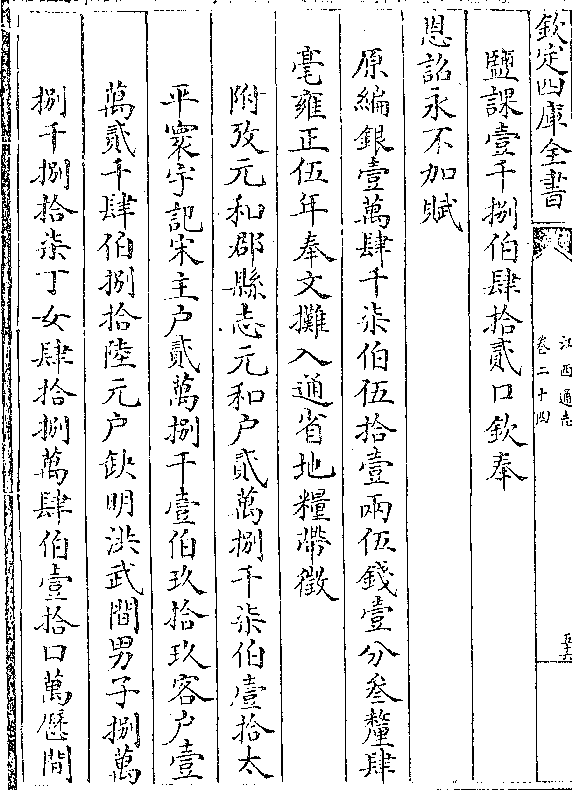 欽定四庫全書
江西通志
卷二十四
五六
鹽課壹千捌伯肆拾貳口欽奉
恩詔永不加賦
原編銀壹萬肆千柒伯伍拾壹兩伍錢壹分叁釐肆
毫雍正伍年奉文攤入通省地糧帶徵
附攷元和郡縣志元和户貳萬捌千柒伯壹拾太
平寰宇記宋主户貳萬捌千壹伯玖拾玖客户壹
萬貳千肆伯捌拾陸元户缺明洪武間男子捌萬
捌千捌拾柒丁女肆拾捌萬肆伯壹拾口萬歴間